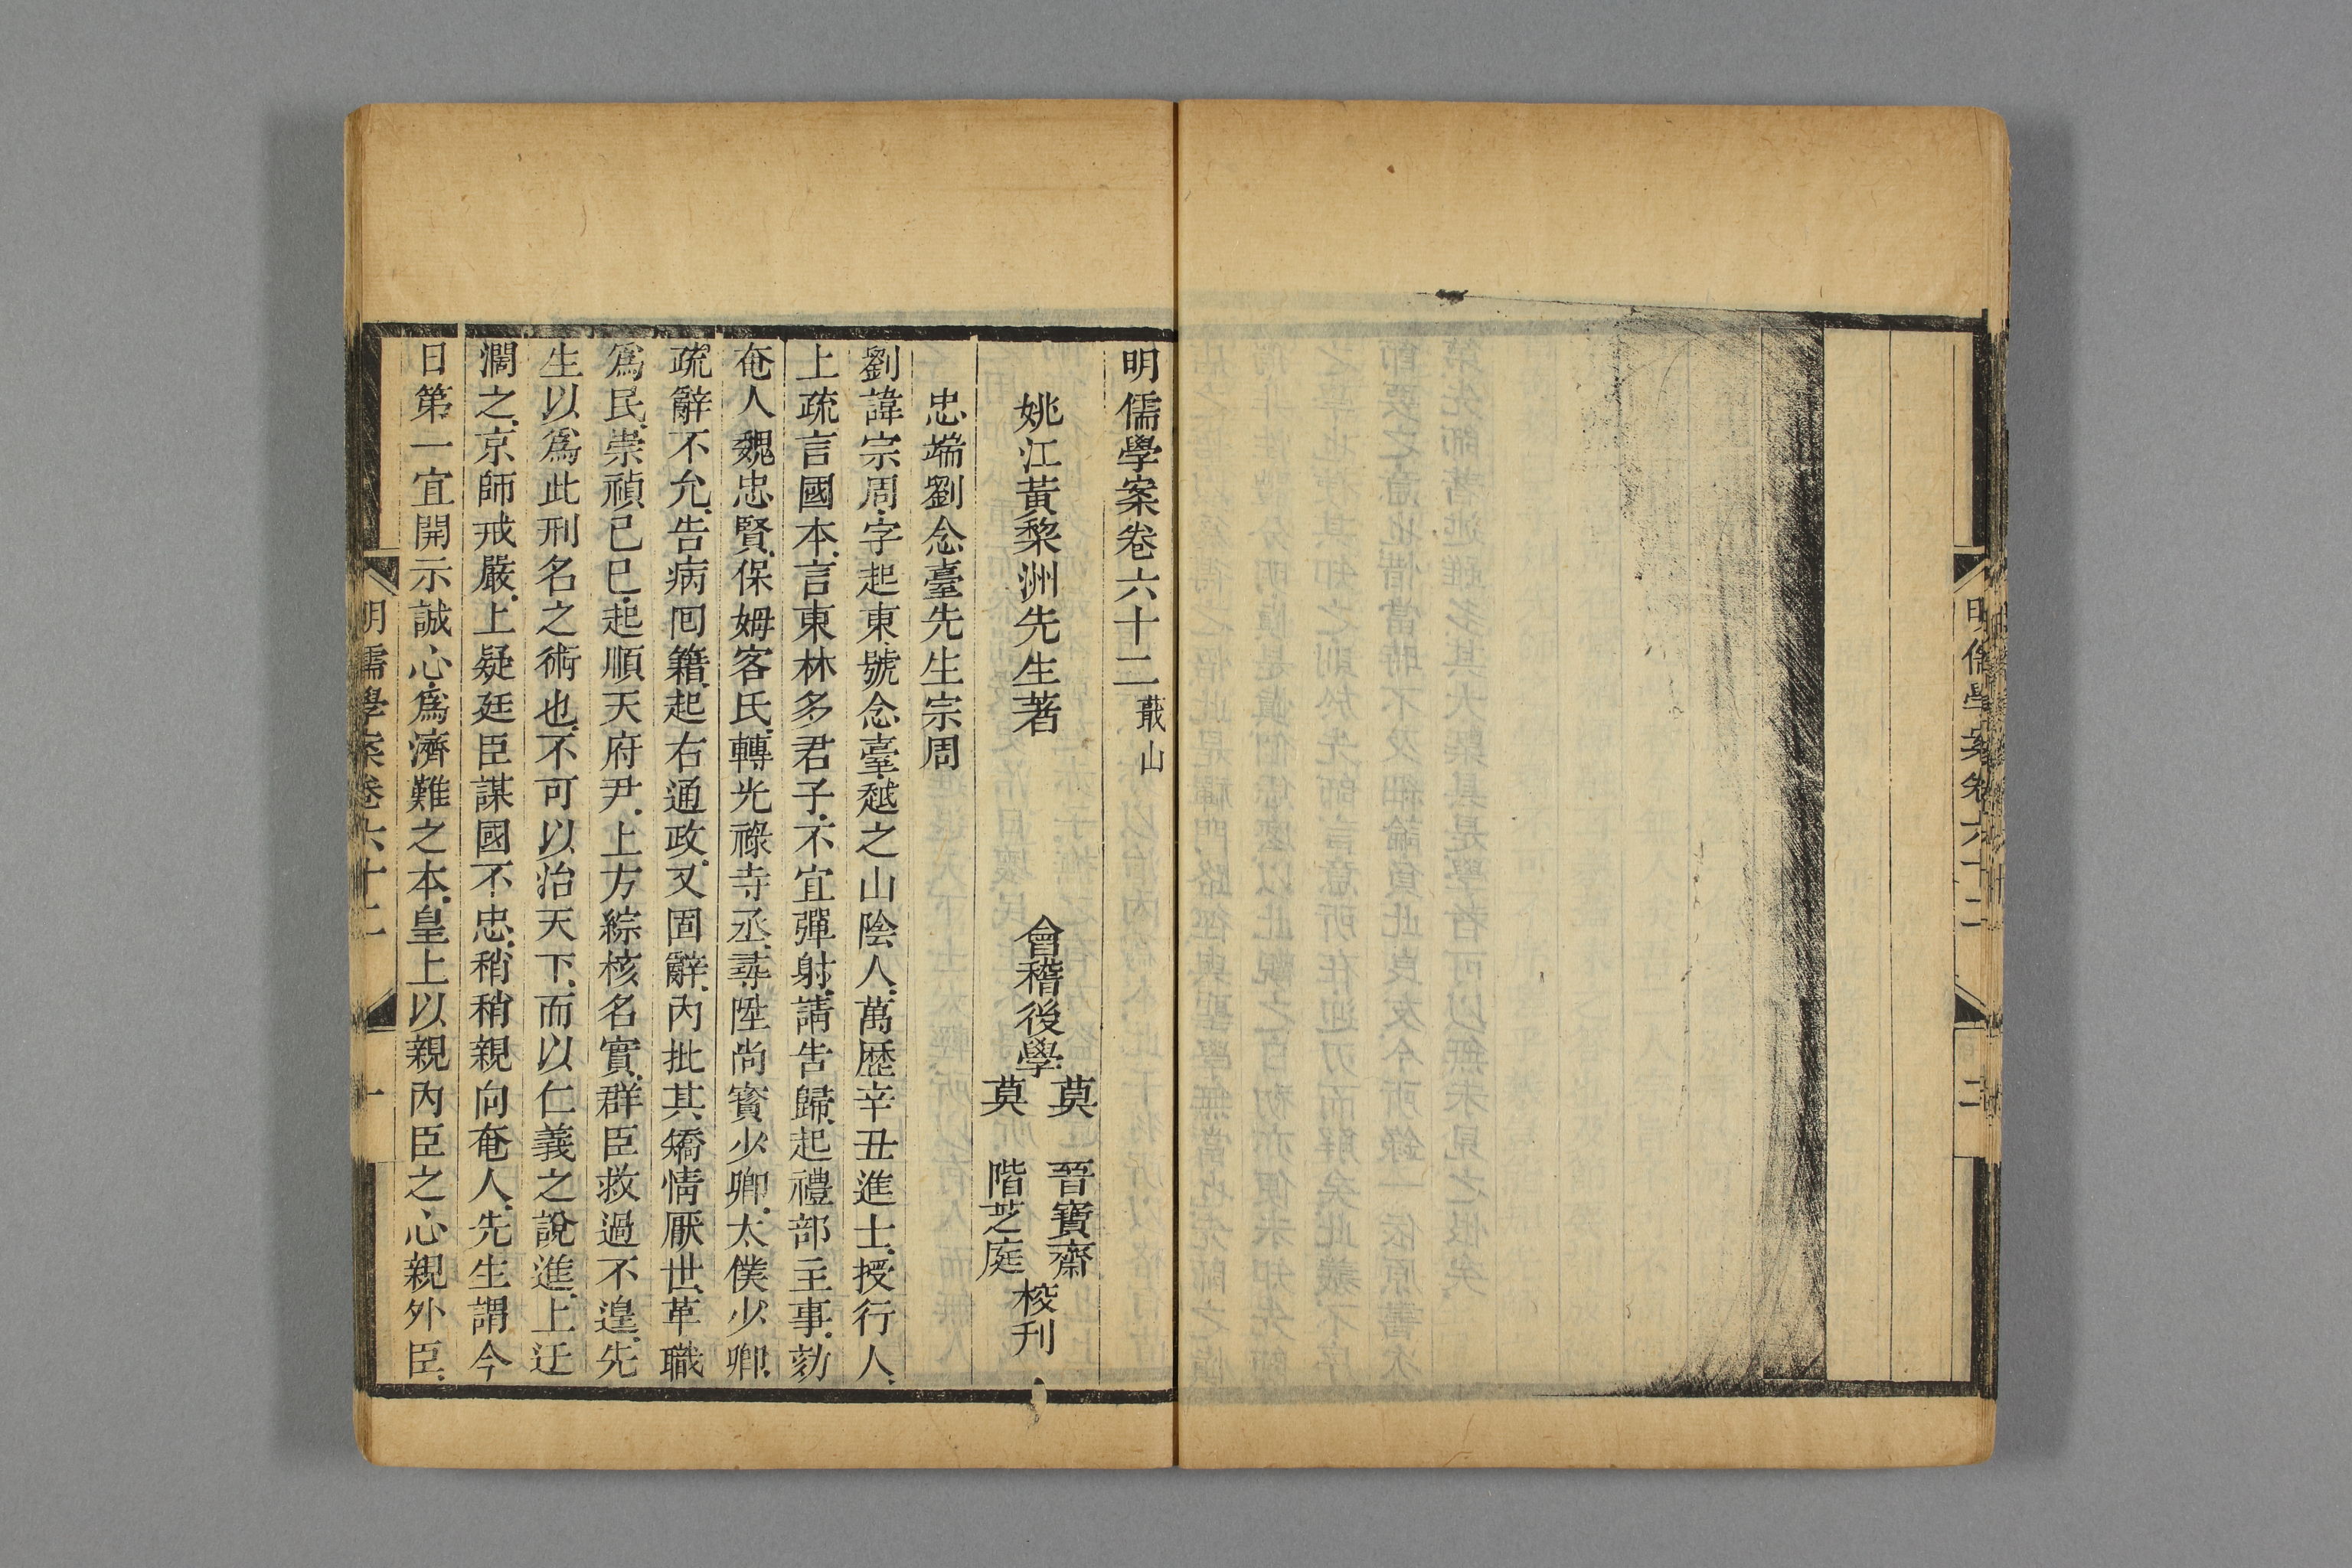 明儒學案卷六十二
二
明儒學案卷六十二 蕺山
姚江黃黎洲先生著 會稽後學
莫 晉寶齋
莫 階芝庭
梭刊
忠端劉念臺先生宗周
劉諱宗周.字起東.號念臺.越之山陰人.萬歷辛丑進士.授行人.
上疏言國本.言東林多君子.不宜彈射.請告歸.起禮部主事.劾
奄人魏忠賢.保姆客氏.轉光祿寺丞.尋陞尚寶少卿.太僕少卿.
疏辭不允.告病囘籍.起右通政.又固辭.內批其矯情厭世.革職
爲民.崇禎己巳.起順天府尹.上方綜核名實.群臣救過不遑.先
生以爲此刑名之術也.不可以治天下.而以仁義之說進.上迂
濶之.京師戒嚴.上疑廷臣謀國不忠.稍稍親向奄人.先生謂今
日第一宜開示誠心.爲濟難之本.皇上以親內臣之心親外臣.
明儒學案卷六十二
一